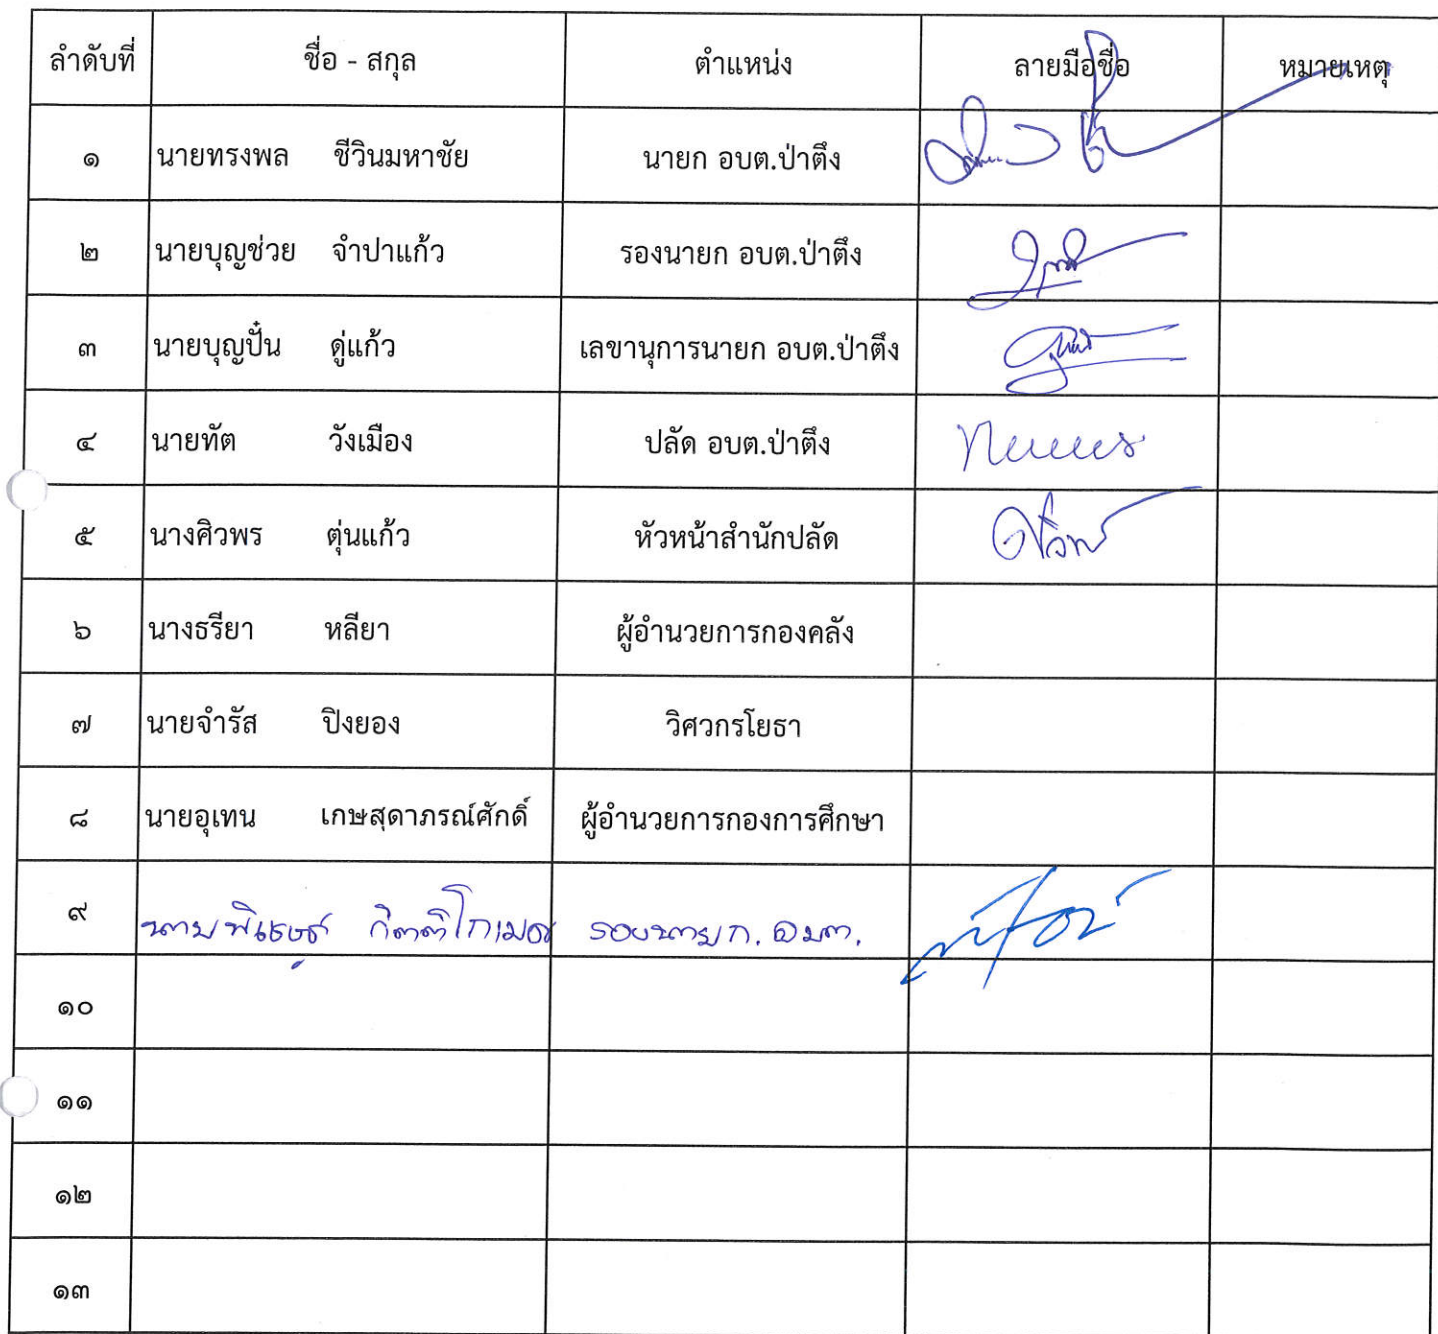 ลำดับที่ ชื่อ - สกุล ตำแหน่ง ลายมือชื่อ หมายเหตุ
๑ นายทรงพล ชีวินมหาชัย นายก อบต.ป่าตึง
๒ นายบุญช่วย จำปาแก้ว รองนายก อบต.ป่าตึง
๓ นายบุญปั๋น ดู่แก้ว เลขานุการนายก อบต.ป่าตึง
๔ นายทัต วังเมือง ปลัด อบต.ป่าตึง
๕ นางศิวพร ตุ่นแก้ว หัวหน้าสำนักปลัด
๖ นางธรียา หลียา ผู้อำนวยการกองคลัง
๗ นายจำรัส ปิงยอง วิศวกรโยธา
๘ นายอุเทน เกษสุดาภรณ์ศักดิ์ ผู้อำนวยการกองการศึกษา
๙ นาย รองนายก. อบต.
๑๐
๑๑
๑๒
๑๓